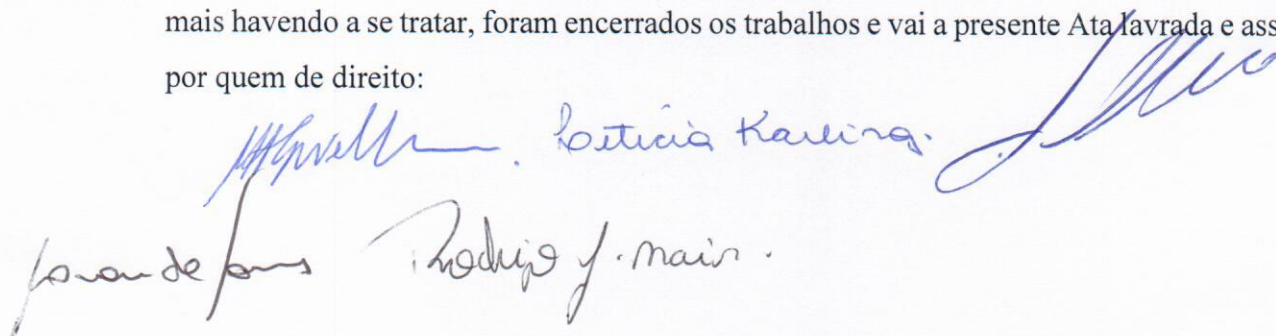 mais havendo a se tratar, foram encerrados os trabalhos e vai a presente Ata lavrada e ass
por quem de direito:
Leticia Karling.
Rodrigo J.